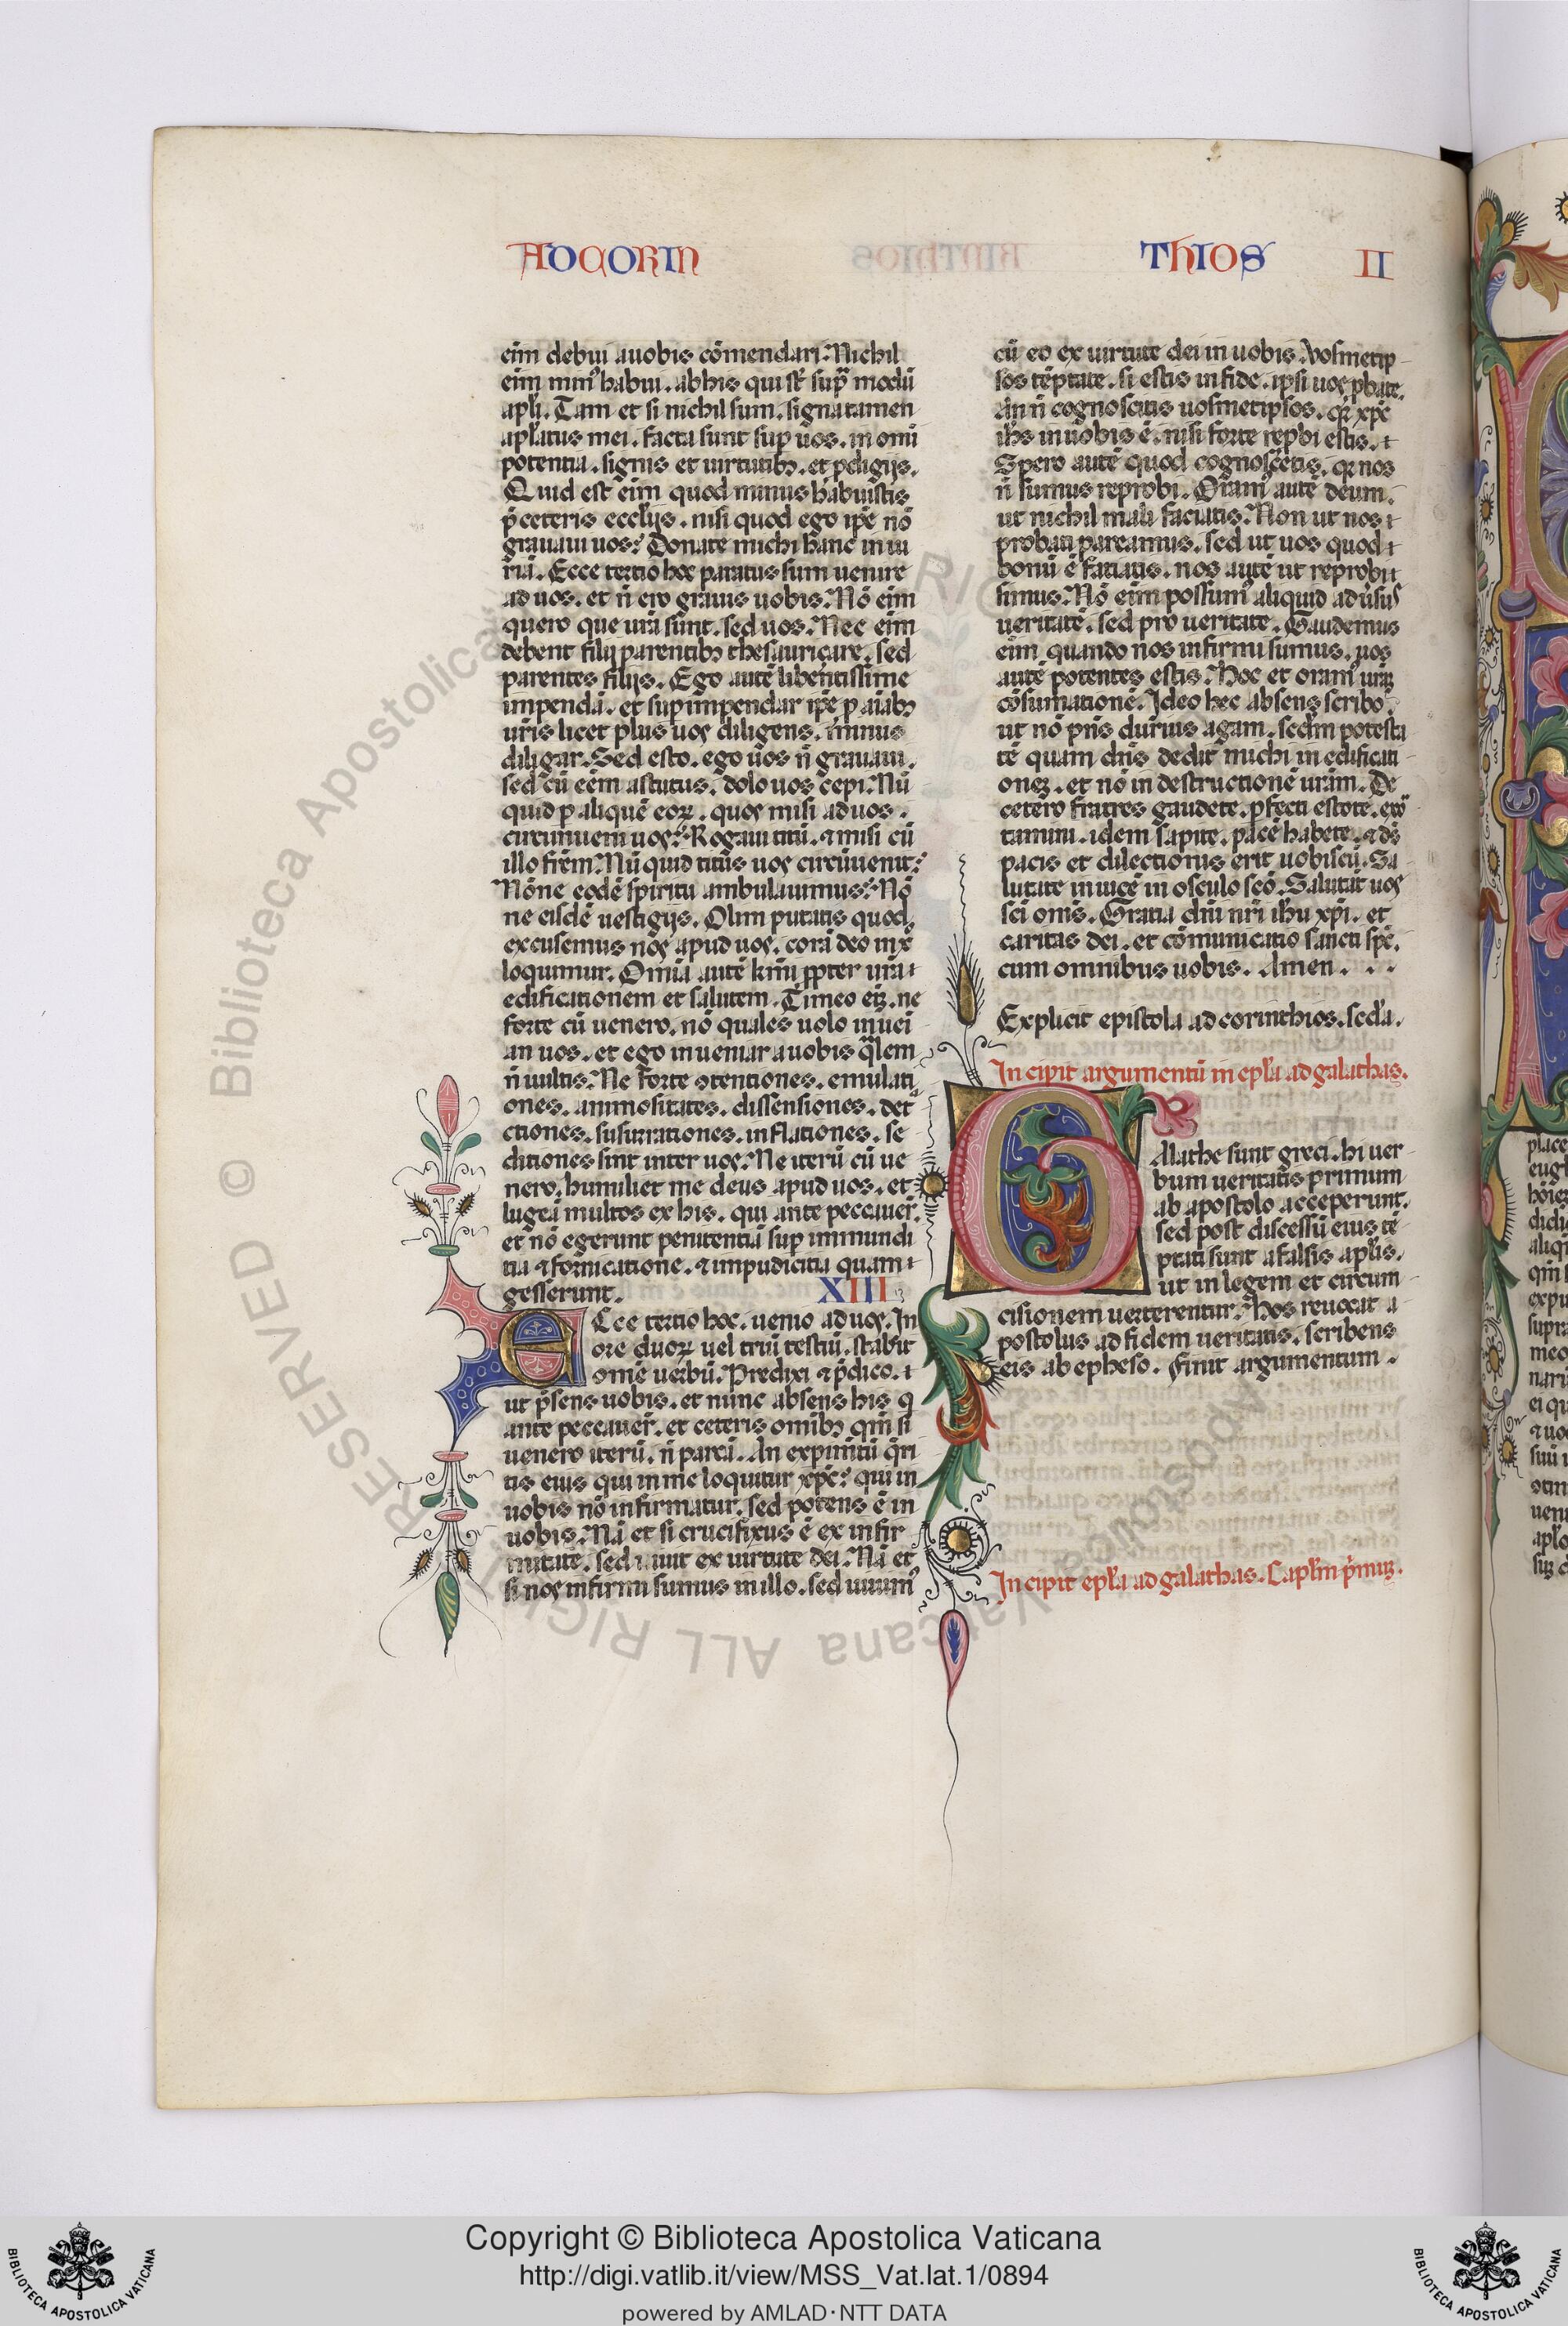 AD CORIN
THIOS II
eim debui a uobis cōmendari. Nichil
eim min' habui. ab his qui st' sup̄ modū
apli. Tam et si nichil sum. signa tamen
aplatus mei. facta sunt sup uos. in omi
potentia. signis et uirtutibꝫ. et pdigijs.
Quid est eim quod minus habuistis
p̄ ceteris ecclijs. nisi quod ego ip̄e nō
grauaui uos? Donate michi hanc iniu
riā. Ecce tertio hoc paratus sum uenire
ad uos. et n̄ ero grauis uobis. Nō eim
quero que ur̄a sunt. sed uos. Nec eim
debent filij parentibꝫ thesauriçare. sed
parentes filijs. Ego autē libentissime
impendā. et sup impendar ip̄e p aīabꝫ
ur̄is licet plus uos diligens. minus
diligar. Sed esto. ego uos n̄ grauaui.
sed cū eēm astutus. dolo uos cepi. Nū
quid p aliquē eoꝝ. quos misi ad uos.
circumueni uos? Rogaui titū. ⁊ misi cū
illo frēm. Nū quid titus uos circūuenit?
Nōne eodē spiritu ambulauimus? Nō
ne eisdē uestigijs. Olim putatis quod
excusemus nos apud uos. corā deo in xp̄o
loquimur. Omia autē kmi ꝓpter ur̄a
edificationem et salutem. Timeo eīꝫ. ne
forte cū uenero. nō quales uolo inuei
an uos. et ego inueniar a uobis qlem
n̄ uultis. Ne forte ɔtentiones. emulati
ones. animositates. dissensiones. detᵃ
ctiones. susurrationes. inflationes. se
ditiones sint inter uos. Ne iterū cū ue
nero. humiliet me deus apud uos. et
lugeā multos ex his. qui ante peccauer̄.
et nō egerunt penitentiā sup immundi
tia ⁊ fornicatione. ⁊ impudicitia quam
gesserunt. XIII
Ecce tertio hoc. uenio ad uos. In
ore duoꝝ uel triū testiū. stabit
omē uerbū. Predixi ⁊ p̄dico.
ut p̄sens uobis. et nunc absens his q
ante peccauer̄. et ceteris omibꝫ qm̄ si
uenero iterū. n̄ parcā. An expimtū q̄ri
tis eius qui in me loquitur xp̄c? qui in
uobis nō infirmatur. sed potens ē in
uobis. Nā et si crucifixus ē ex infir
mitate. sed uiuit ex uirtute dei. Nā et
si nos infirmi sumus in illo. sed uiuim'
cū eo ex uirtute dei in uobis. Vosmetip
sos tēptate. si estis in fide. ipsi uos pbate.
An n̄ cognoscitis uosmetipsos. qꝛ xp̄c
ih̄s in uobis ē. nisi forte repbi estis.
Spero autē quod cognoscetis. qꝛ nos
n̄ sumus reprobi. Oram' autē deum.
ut nichil mali faciatis. Non ut nos
probati pareamus. sed ut uos quod
bonū ē faciatis. nos autē ut reprobi
simus. Nō eim possum' aliquid adusus
ueritatē. sed pro ueritate. Gaudemus
eim quando nos infirmi sumus. uos
autē potentes estis. Hoc et oram' ur̄aꝫ
cōsumationē. Ideo hec absens scribo.
ut nō p̄ns durius agam. sedm̄ potesta
tē quam dn̄s dedit michi in edificati
oneꝫ. et nō in destructionē ur̄am. De
cetero fratres gaudete. pfecti estote. exor
tamini. idem sapite. pacē habete. ⁊ ds̄
pacis et dilectionis erit uobiscū. Sa
lutate inuicē in osculo sc̄o. Salutāt uos
sc̄i om̄s. Gratia dn̄i nr̄i ih̄u xp̄i. et
caritas dei. et cōmunicatio sancti spc̄.
cum omnibus uobis. Amen. . .
Explicit epistola ad corinthios. sedā.
Incipit argumentū in epl̄a ad galathas.
Galathe sunt greci. hi uer
bum ueritatis primum
ab apostolo acceperunt.
sed post discessū eius tē
ptati sunt a falsis aplis.
ut in legem et circum
cisionem uerterentur. Hos reuocat a
postolus ad fidem ueritatis. scribens
eis ab epheso. Finit argumentum.
Incipit epl̄a ad galathas. Caplm p̄muꝫ.
© Biblioteca Apostolica Vaticana ALL RIGHTS RESERVED
Copyright © Biblioteca Apostolica Vaticana
http://digi.vatlib.it/view/MSS_Vat.lat.1/0894
powered by AMLAD·NTT DATA
BIBLIOTECA APOSTOLICA VATICANA
BIBLIOTECA APOSTOLICA VATICANA